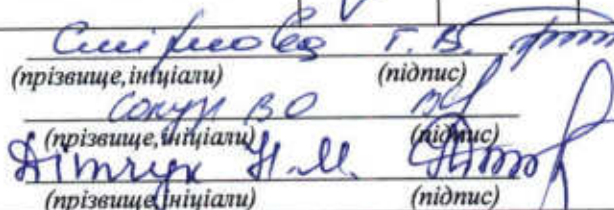 Смірнова Т. В.
(прізвище, ініціали) (підпис)
Сокур В О
(прізвище, ініціали) (підпис)
Н. М.
(прізвище, ініціали) (підпис)